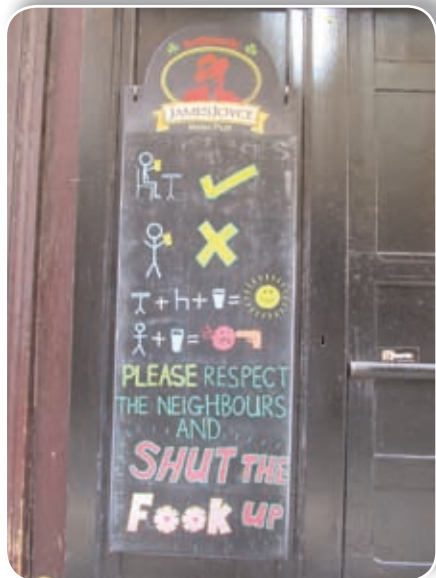 JAMES JOYCE
IRISH PUB
T + h + = 
+ =
PLEASE RESPECT
THE NEIGHBOURS
AND
SHUT THE
FOOK UP